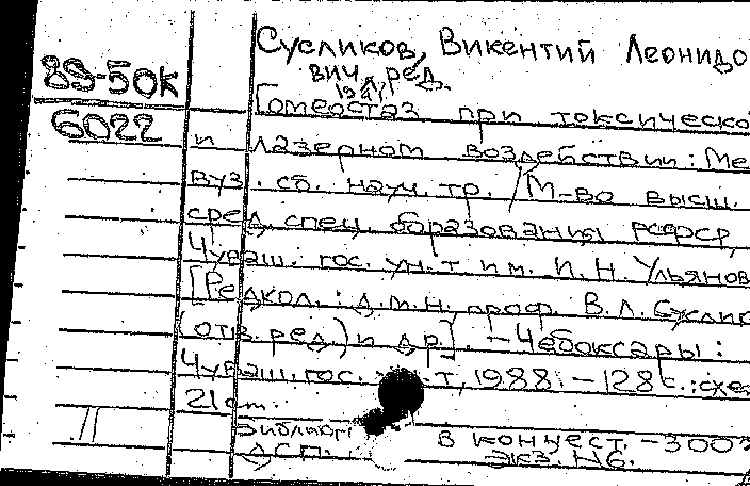 Сусликов, Викентий Леонидо
89-50К
вич, ред.
1941
Гомеостаз при токсическо
6022
и лазерном воздействии: Ме
вуз. сб. науч. тр. / М-во высш.
сред. спец. образования РСФСР,
Чуваш. гос. ун-т им. И. Н. Ульянов
[Редкол.: д.м.н. проф. В.Л. Суслик
(отв. ред.) и др]. - Чебоксары:
Чуваш. гос. ун-т, 1988. - 128 с.: схе
21 см.
Библиогр в конце ст. - 300
ДСП. экз. Нб.